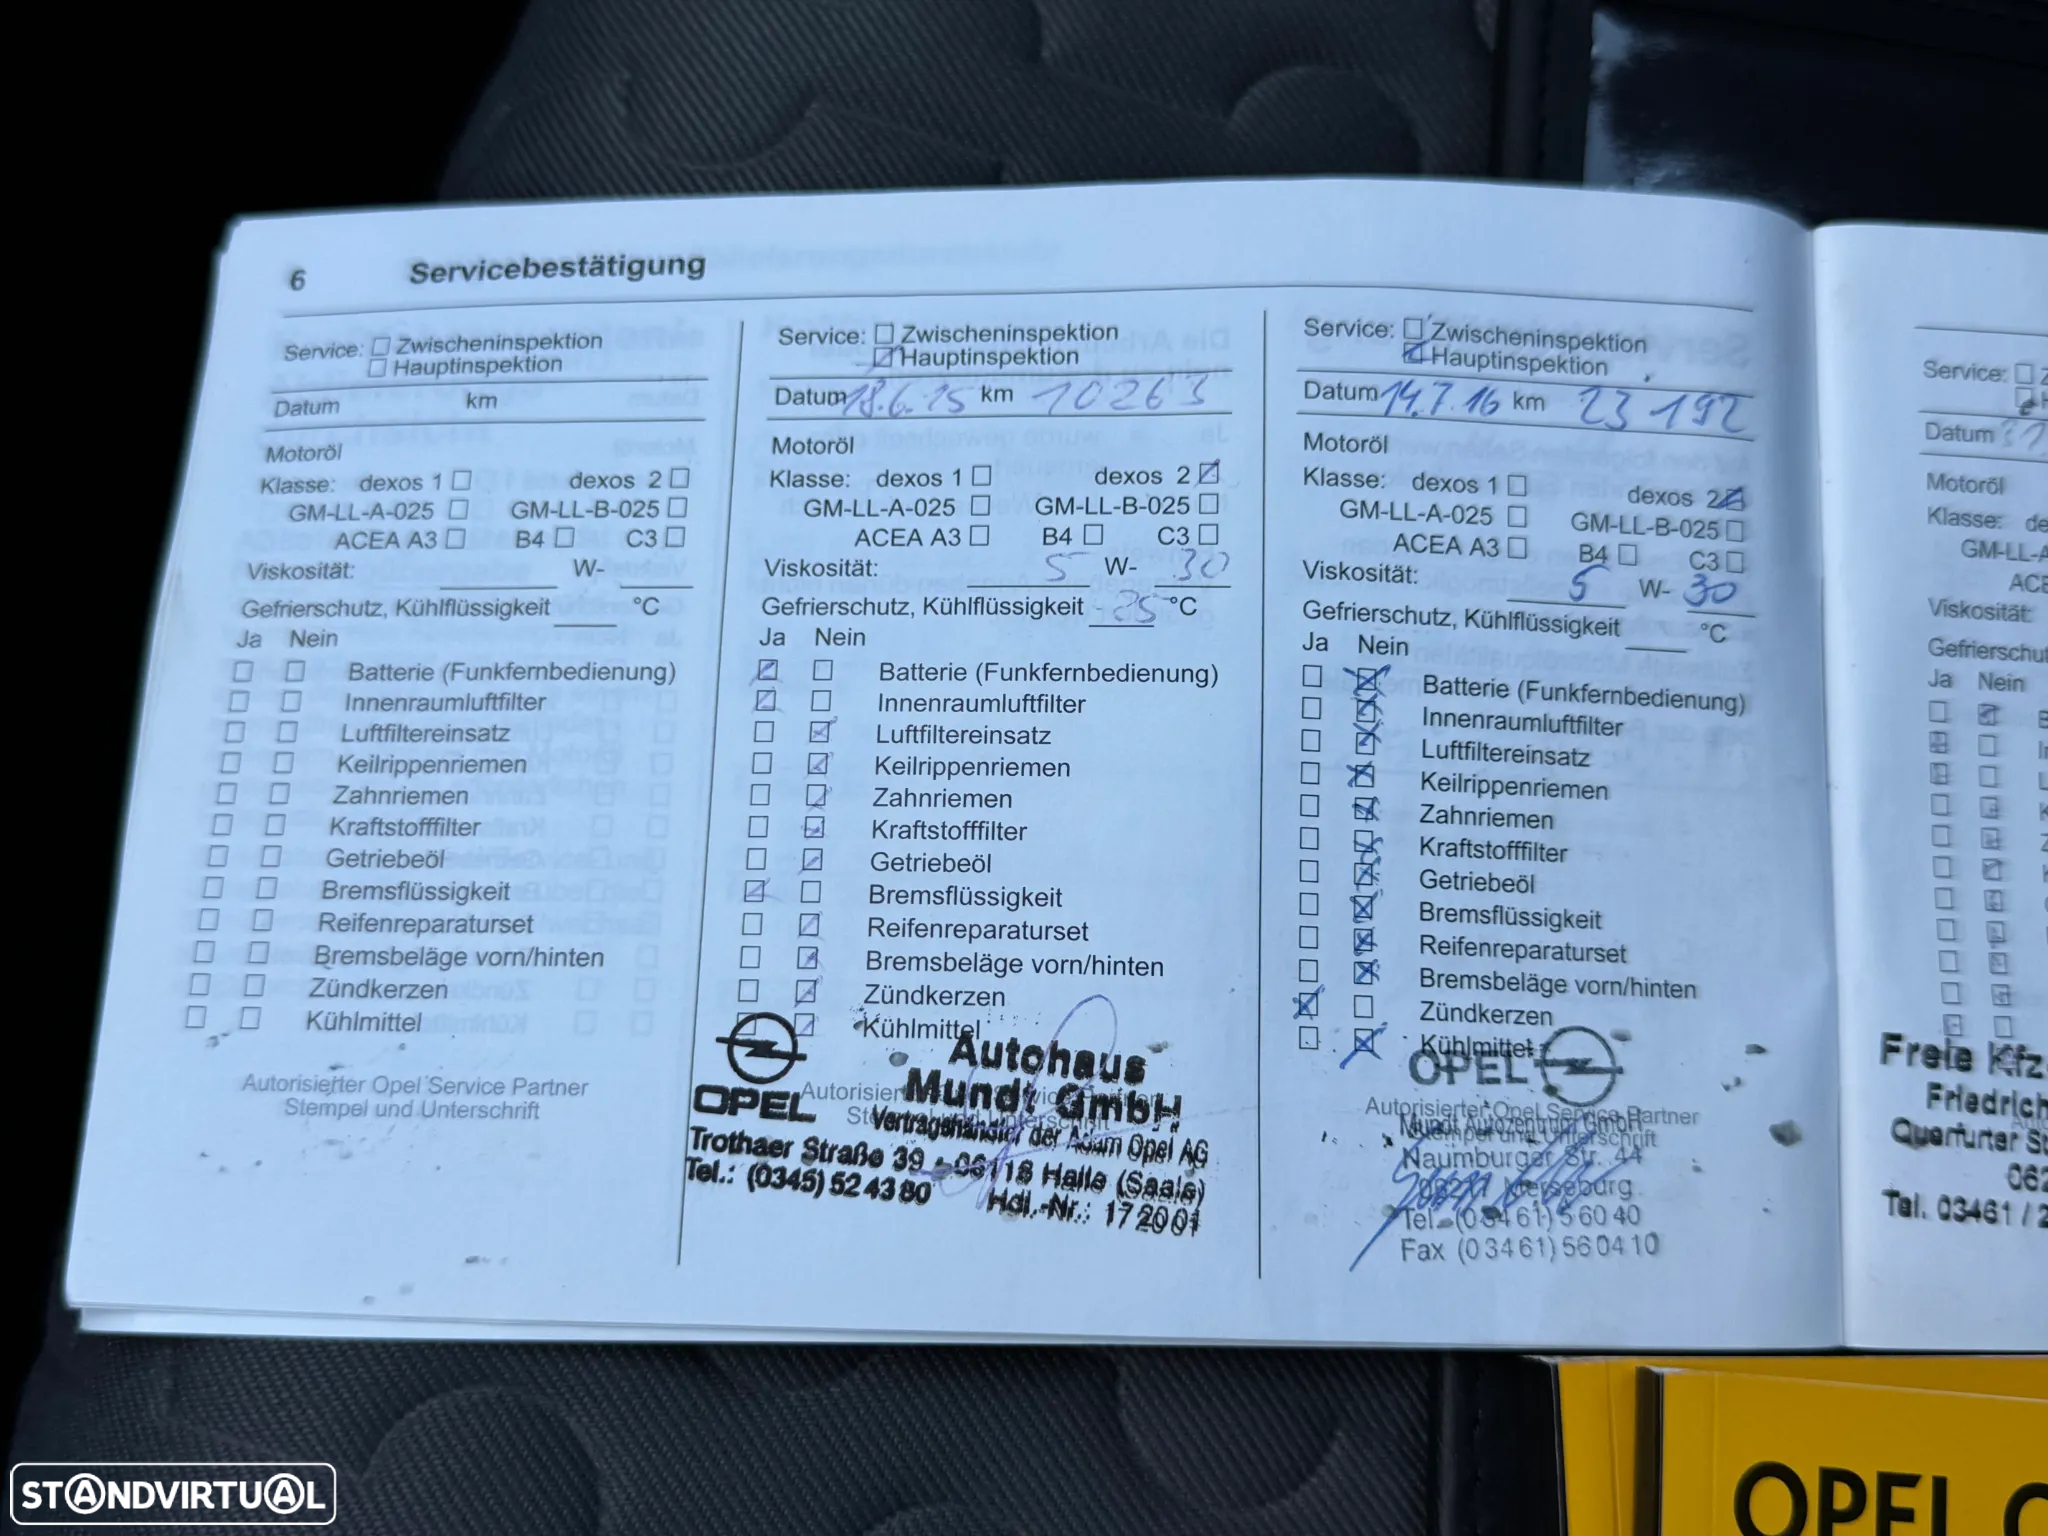 6 Servicebestätigung
Service: Zwischeninspektion
Hauptinspektion
Datum km
Motoröl
Klasse: dexos 1 dexos 2
GM-LL-A-025 GM-LL-B-025
ACEA A3 B4 C3
Viskosität: W-
Gefrierschutz, Kühlflüssigkeit °C
Ja Nein
Batterie (Funkfernbedienung)
Innenraumluftfilter
Luftfiltereinsatz
Keilrippenriemen
Zahnriemen
Kraftstofffilter
Getriebeöl
Bremsflüssigkeit
Reifenreparaturset
Bremsbeläge vorn/hinten
Zündkerzen
Kühlmittel
Autorisierter Opel Service Partner
Stempel und Unterschrift
Service: Zwischeninspektion
Hauptinspektion
Datum 18.6.15 km 10263
Motoröl
Klasse: dexos 1 dexos 2
GM-LL-A-025 GM-LL-B-025
ACEA A3 B4 C3
Viskosität: 5 W- 30
Gefrierschutz, Kühlflüssigkeit -35 °C
Ja Nein
Batterie (Funkfernbedienung)
Innenraumluftfilter
Luftfiltereinsatz
Keilrippenriemen
Zahnriemen
Kraftstofffilter
Getriebeöl
Bremsflüssigkeit
Reifenreparaturset
Bremsbeläge vorn/hinten
Zündkerzen
Kühlmittel
OPEL
Autohaus
Mundt GmbH
Vertragshändler der Adam Opel AG
Trothaer Straße 39 06118 Halle (Saale)
Tel.: (0345) 52 43 80 Hdl.-Nr.: 172001
Service: Zwischeninspektion
Hauptinspektion
Datum 14.7.16 km 23 192
Motoröl
Klasse: dexos 1 dexos 2
GM-LL-A-025 GM-LL-B-025
ACEA A3 B4 C3
Viskosität: 5 W- 30
Gefrierschutz, Kühlflüssigkeit °C
Ja Nein
Batterie (Funkfernbedienung)
Innenraumluftfilter
Luftfiltereinsatz
Keilrippenriemen
Zahnriemen
Kraftstofffilter
Getriebeöl
Bremsflüssigkeit
Reifenreparaturset
Bremsbeläge vorn/hinten
Zündkerzen
Kühlmittel
OPEL
Autorisierter Opel Service Partner
Mundt Autozentrum GmbH
Naumburger Str. 44
Merseburg
Tel. (03461) 56040
Fax (03461) 560410
Service:
Datum
Motoröl
Klasse:
GM-LL-A
Viskosität:
Gefrierschutz
Ja Nein
Freie Kfz
Friedrich
Querfurter
Tel. 03461 / 2
OPEL
STANDVIRTUAL